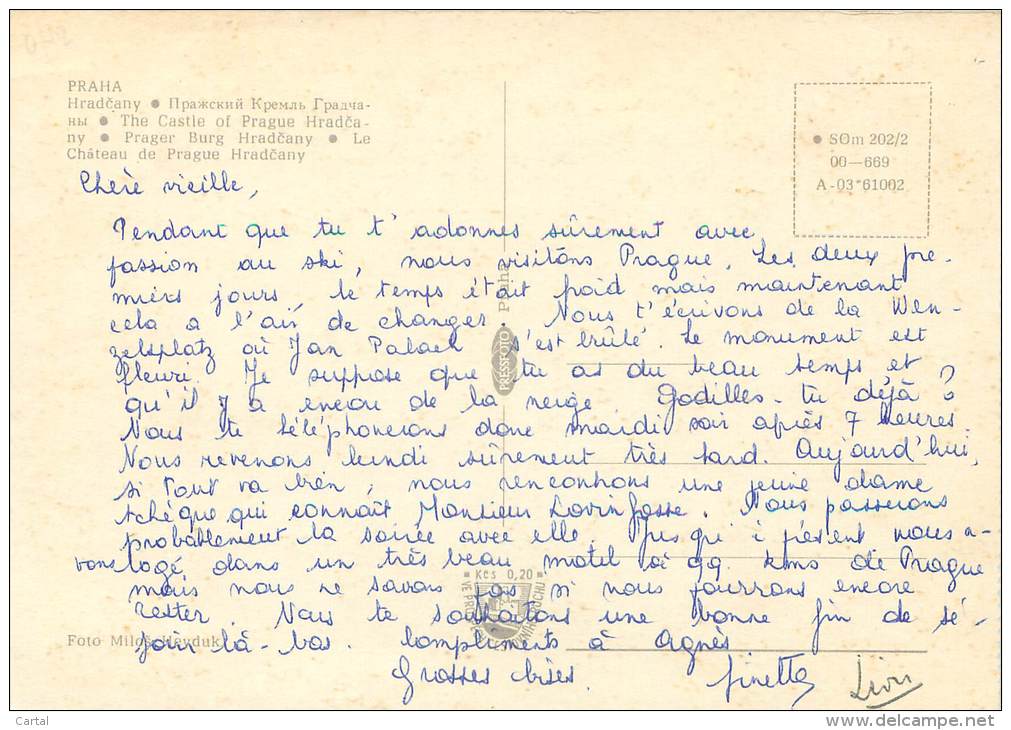 PRAHA
Hradčany ● Пражский Кремль Градча-
ны ● The Castle of Prague Hradča-
ny ● Prager Burg Hradčany ● Le
Château de Prague Hradčany
● SOm 202/2
00—669
A-03*61002
Chère vieille,
Pendant que tu t'adonnes sûrement avec
passion au ski, nous visitons Prague. Les deux pre-
miers jours, le temps était froid mais maintenant
cela a l'air de changer. Nous t'écrivons de la Wen-
zelsplatz où Jan Palach s'est brûlé. Le monument est
fleuri. Je suppose que tu as du beau temps et
qu'il y a encore de la neige. Godilles-tu déjà ?
Nous te téléphonerons donc mardi soir après 7 heures.
Nous revenons lundi sûrement très tard. Aujourd'hui,
si tout va bien, nous rencontrons une jeune dame
tchèque qui connaît Monsieur Lovinfosse. Nous passerons
probablement la soirée avec elle. Jusqu'i présent nous a-
vons logé dans un très beau motel à 99 kms de Prague
mais nous ne savons pas si nous pourrons encore
rester. Nous te souhaitons une bonne fin de sé-
jour là-bas. Compliments à Agnès.
Grosses bises. Finette
PRESSFOTO Praha
Kčs 0,20
Foto Miloš Heyduk
Cartal
delcampe.net